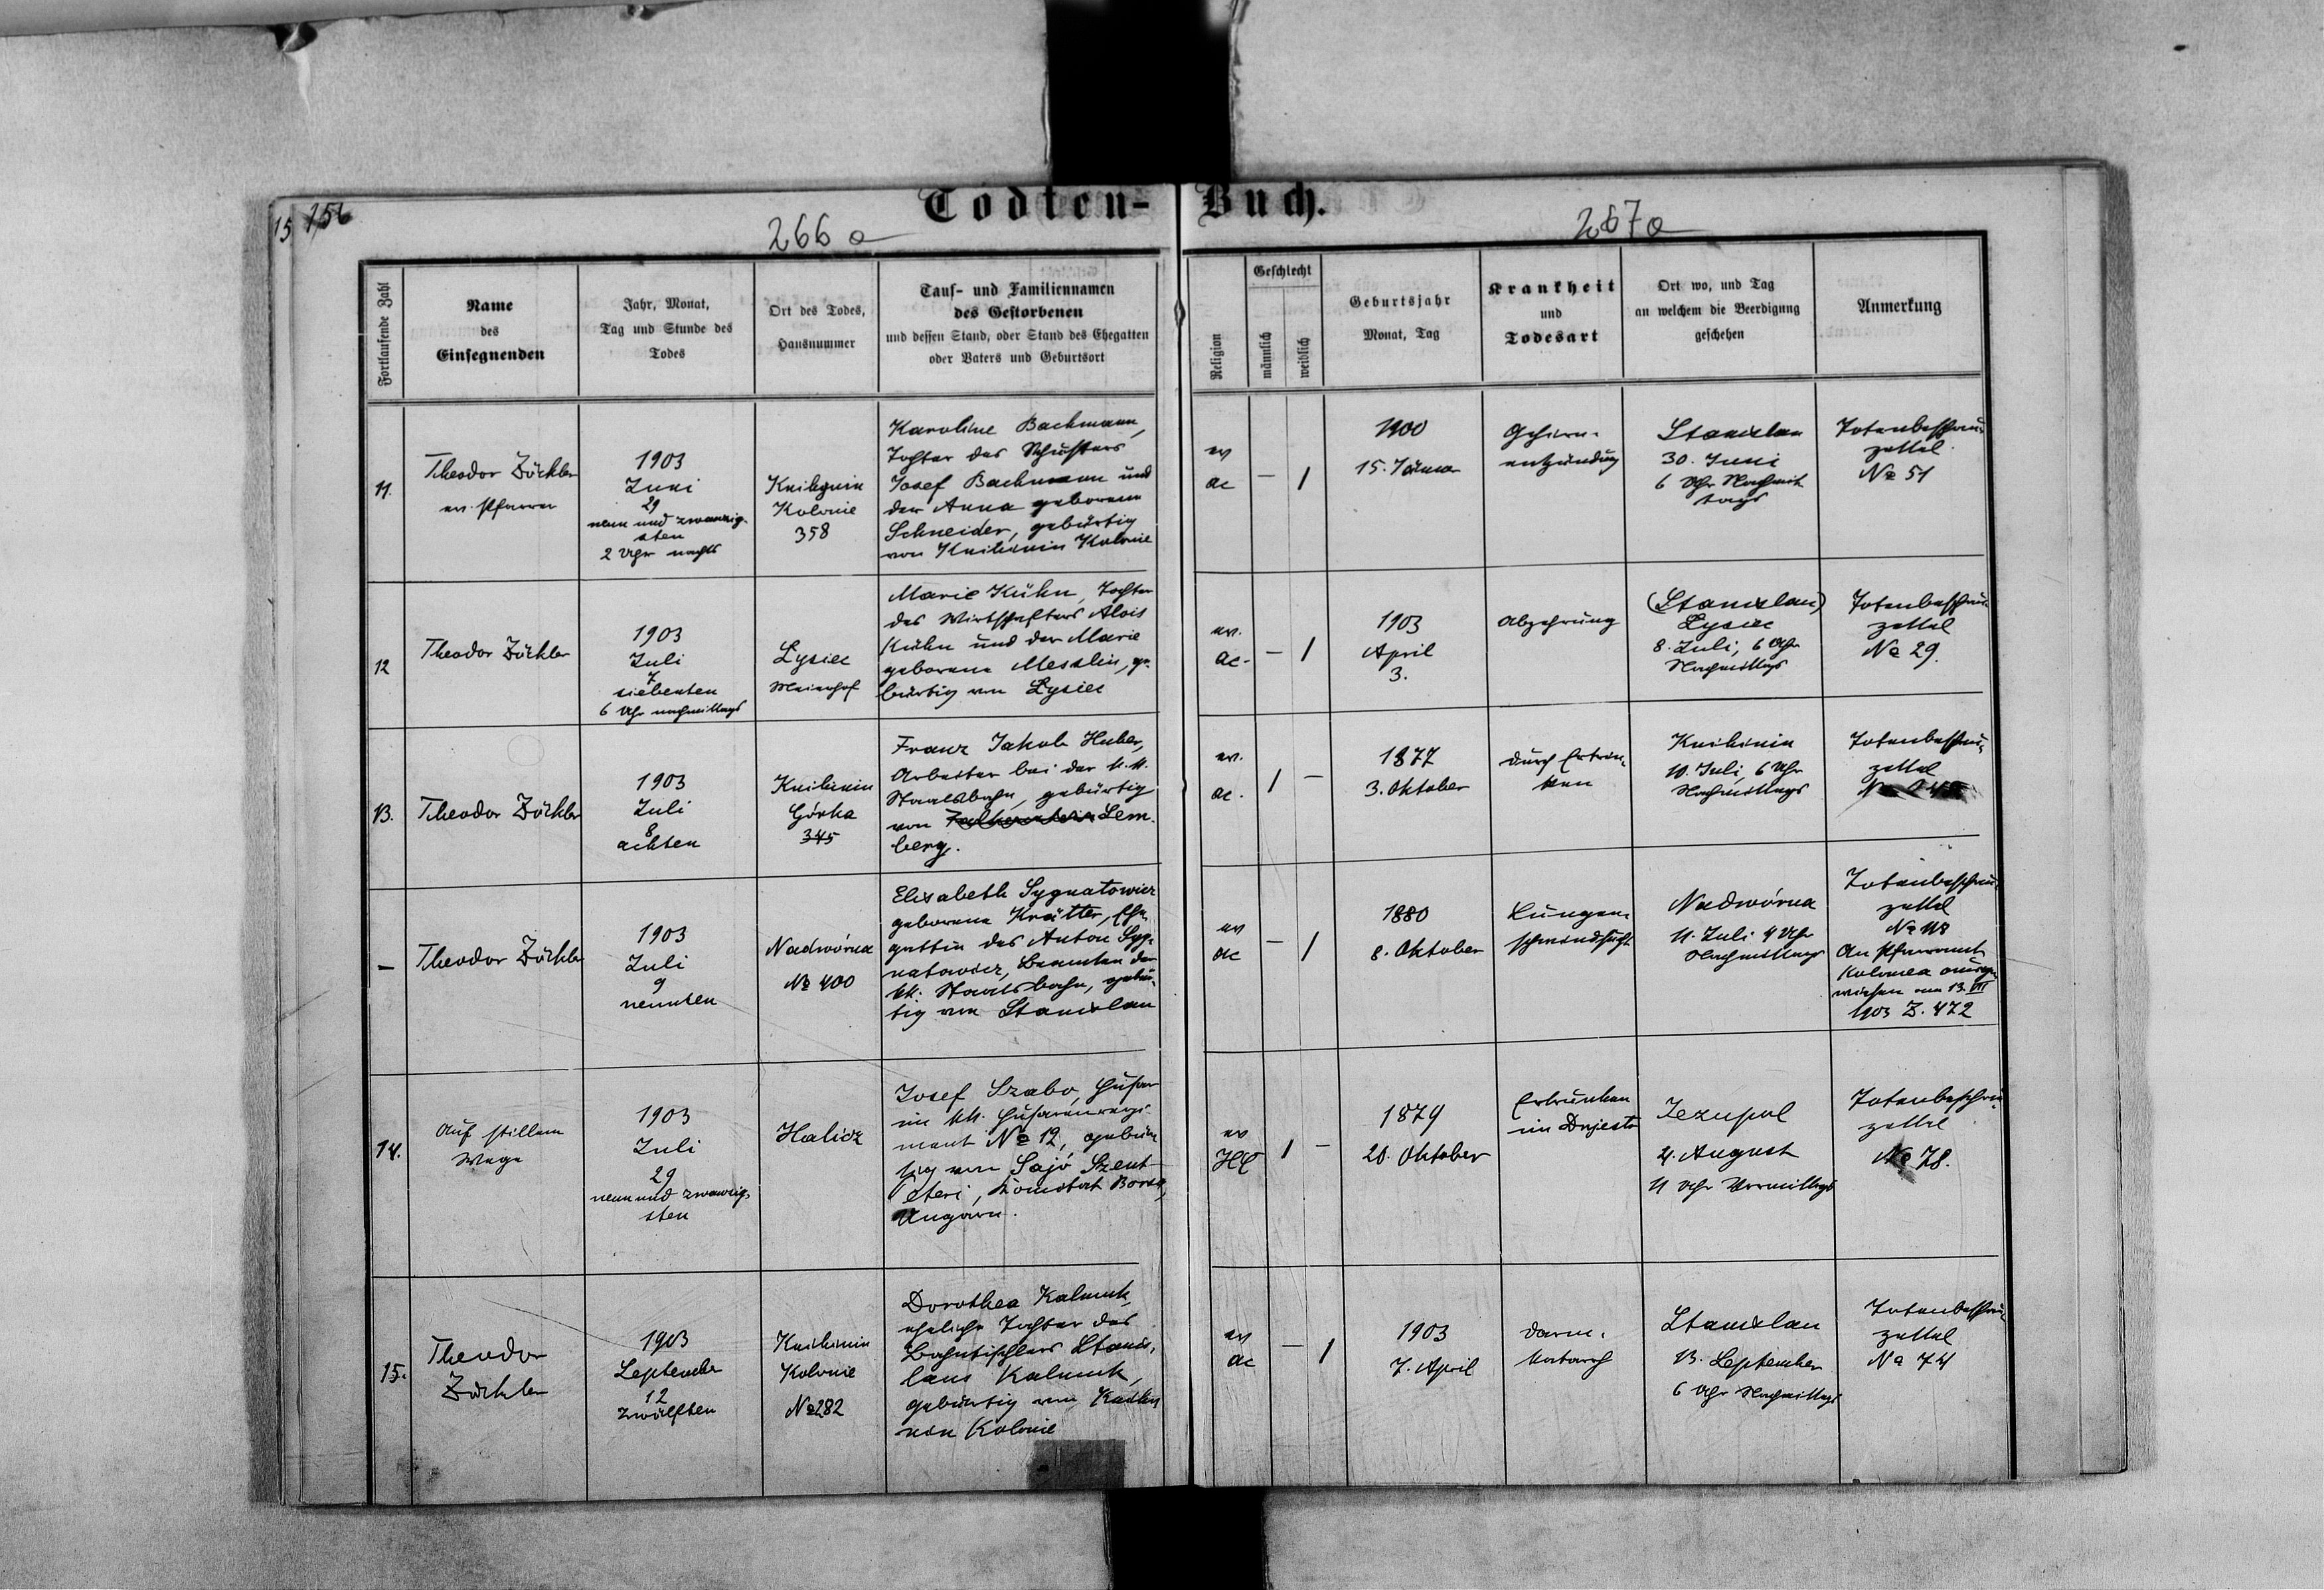 Todten-Buch.
15 156
266 a
267 a
Fortlaufende Zahl
Name
des
Einsegnenden
Jahr, Monat,
Tag und Stunde des
Todes
Ort des Todes,
Hausnummer
Tauf- und Familiennamen
des Gestorbenen
und dessen Stand, oder Stand des Ehegatten
oder Vaters und Geburtsort
Religion
Geschlecht
männlich
weiblich
Geburtsjahr
Monat, Tag
Krankheit
und
Todesart
Ort wo, und Tag
an welchem die Beerdigung
geschehen
Anmerkung
11.
Theodor Zöckler
ev. Pfarrer
1903
Juni
29
neun und zwanzig-
sten
2 Uhr nachts
Knihynin
Kolonie
358
Karoline Bachmann,
Tochter des Schusters
Josef Bachmann und
der Anna geborene
Schneider, gebürtig
von Knihinin Kolonie
ev
ac
–
1
1900
15. Jänner
Gehirn-
entzündung
Stanislau
30. Juni
6 Uhr Nachmit
tags
Totenbeschau-
zettel.
No 51
12
Theodor Zöckler
1903
Juli
7
siebenten
6 Uhr nachmittags
Lysiec
Meierhof
Marie Kühn, Tochter
des Wirtschafters Alois
Kühn und der Marie
geborene Messlin, ge-
bürtig von Lysiec
ev.
ac.
–
1
1903
April
3.
Abzehrung
(Stanislau)
Lysiec
8. Juli, 6 Uhr
Nachmittags
Totenbeschau-
zettel
No 29.
13.
Theodor Zöckler
1903
Juli
8
achten
Knihinin
Górka
345
Franz Jakob Huber,
Arbeiter bei der k.k.
Staatsbahn, gebürtig
von Lem-
berg.
ev.
ac.
1
–
1877
3. Oktober
durch Ertrin-
ken
Knihinin
10. Juli, 6 Uhr
Nachmittags
Totenbeschau-
zettel
–
Theodor Zöckler
1903
Juli
9
neunten
Nadwórna
No 400
Elisabeth Sygnatowicz
geborene Krätter, Ehe-
gattin des Anton Syg-
natowicz, Beamten der
kk. Staatsbahn, gebür-
tig von Stanislau
ev
ac
–
1
1880
8. Oktober
Lungen-
schwindsucht
Nadwórna
11. Juli 4 Uhr
Nachmittags
Totenbeschau-
zettel
An Pfarramt
Kolomea
am 13. VII
1903 Z. 472
14.
Auf stillem
Wege
1903
Juli
29
neun und zwanzig-
sten
Halicz
Josef Szabo, Husar
im kk. Husarenregi-
ment No 12, gebür-
tig von Sajó Szent-
Peteri, Komitat Borsod,
Ungarn.
ev
HC
1
–
1879
20. Oktober
Ertrunken
im Dnjestr
Jezupol
4. August
11 Uhr Vormittags
Totenbeschau-
zettel
No 78.
15.
Theodor
Zöckler
1903
September
12
zwölften
Knihinin
Kolonie
No 282
Dorothea Kalmuk,
eheliche Tochter des
Bahntischlers Stanis-
laus Kalmuk,
gebürtig von Knihi-
nin Kolonie
ev
ac
–
1
1903
7. April
Darm-
katarrh
Stanislau
13. September
6 Uhr Nachmittags
Totenbeschau-
zettel
No 74